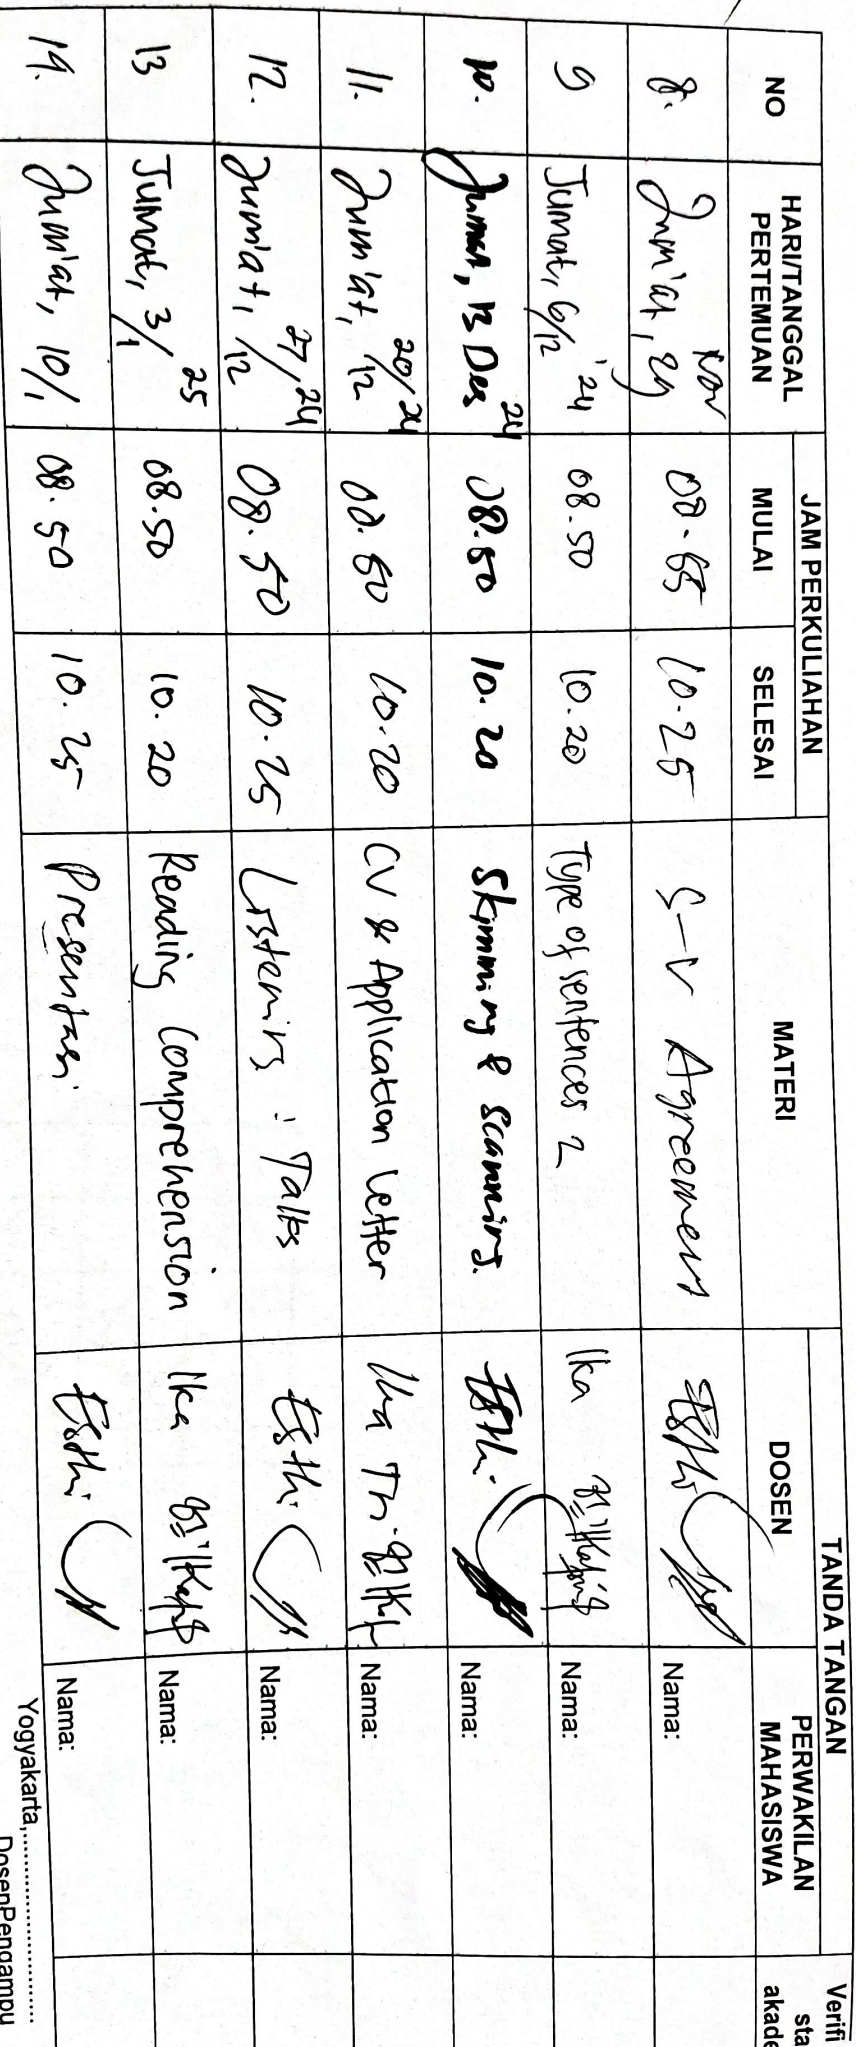 NO HARI/TANGGAL PERTEMUAN JAM PERKULIAHAN MATERI TANDA TANGAN Verifi
MULAI SELESAI DOSEN PERWAKILAN MAHASISWA sta
akade
8. Jum'at, 29 Nov 08.55 10.25 S-V Agreement Esthi Nama:
9 Jumat, 6/12 '24 08.50 10.20 Type of sentences 2 Ika Nama:
10. Jumat, 13 Des 24 08.50 10.20 Skimming & scanning. Esthi Nama:
11. Jum'at, 20/12 24 08.50 10.20 CV & Application Letter Ika Tri Nama:
12. Jum'at, 27/12, 24 08.50 10.25 Listening : Talks Esthi Nama:
13 Jumat, 3/1 25 08.50 10.20 Reading Comprehension Ika Nama:
14. Jum'at, 10/1 08.50 10.25 Presentasi Esthi Nama:
Yogyakarta,........................
DosenPengampu